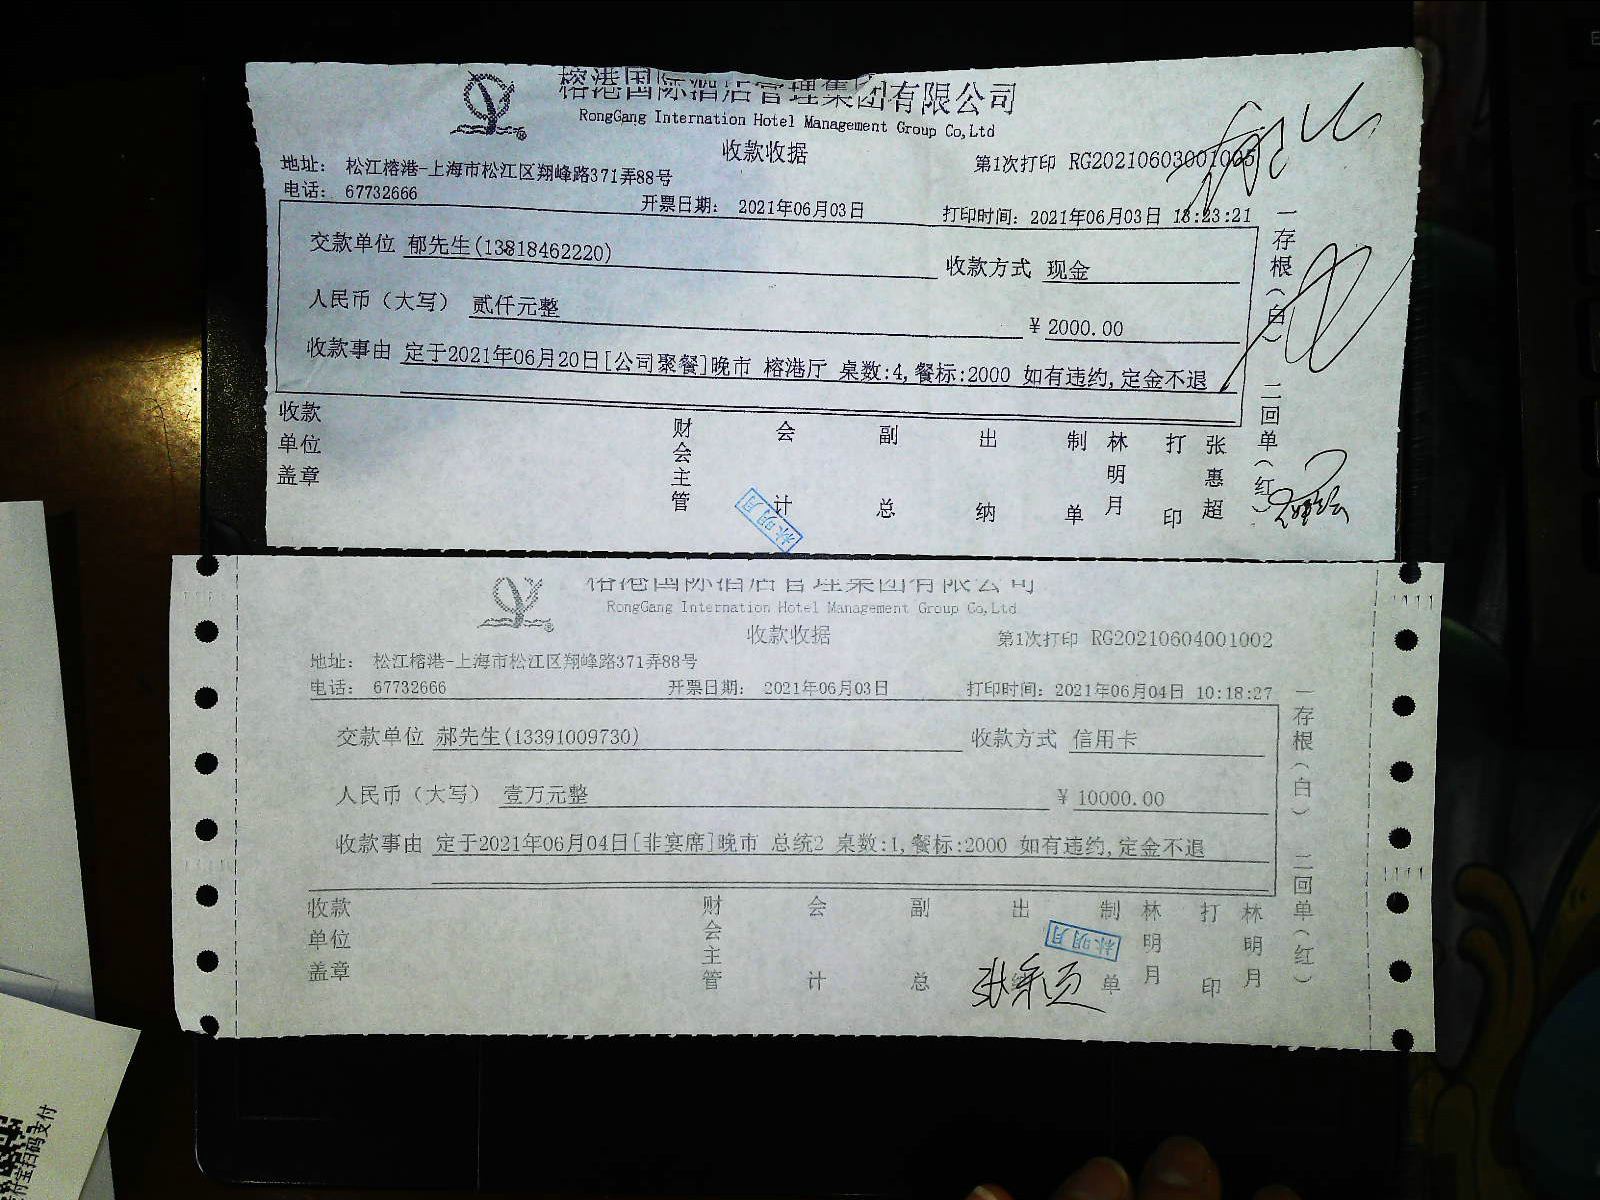 榕港国际酒店管理集团有限公司
RongGang Internation Hotel Management Group Co,Ltd
收款收据
第1次打印 RG20210603001005
地址: 松江榕港-上海市松江区翔峰路371弄88号
电话: 67732666
开票日期: 2021年06月03日
打印时间: 2021年06月03日 13:23:21
交款单位 郁先生(13818462220)
收款方式 现金
人民币（大写） 贰仟元整
¥ 2000.00
收款事由 定于2021年06月20日[公司聚餐]晚市 榕港厅 桌数:4,餐标:2000 如有违约,定金不退
收款单位盖章
财会主管
会计
副总
出纳
制单
林明月
打印
张惠超
一存根(白) 二回单(红)
林明月
榕港国际酒店管理集团有限公司
RongGang Internation Hotel Management Group Co,Ltd
收款收据
第1次打印 RG20210604001002
地址: 松江榕港-上海市松江区翔峰路371弄88号
电话: 67732666
开票日期: 2021年06月03日
打印时间: 2021年06月04日 10:18:27
交款单位 郝先生(13391009730)
收款方式 信用卡
人民币（大写） 壹万元整
¥ 10000.00
收款事由 定于2021年06月04日[非宴席]晚市 总统2 桌数:1,餐标:2000 如有违约,定金不退
收款单位盖章
财会主管
会计
副总
出纳
制单
林明月
打印
林明月
一存根(白) 二回单(红)
林明月
宝扫码支付